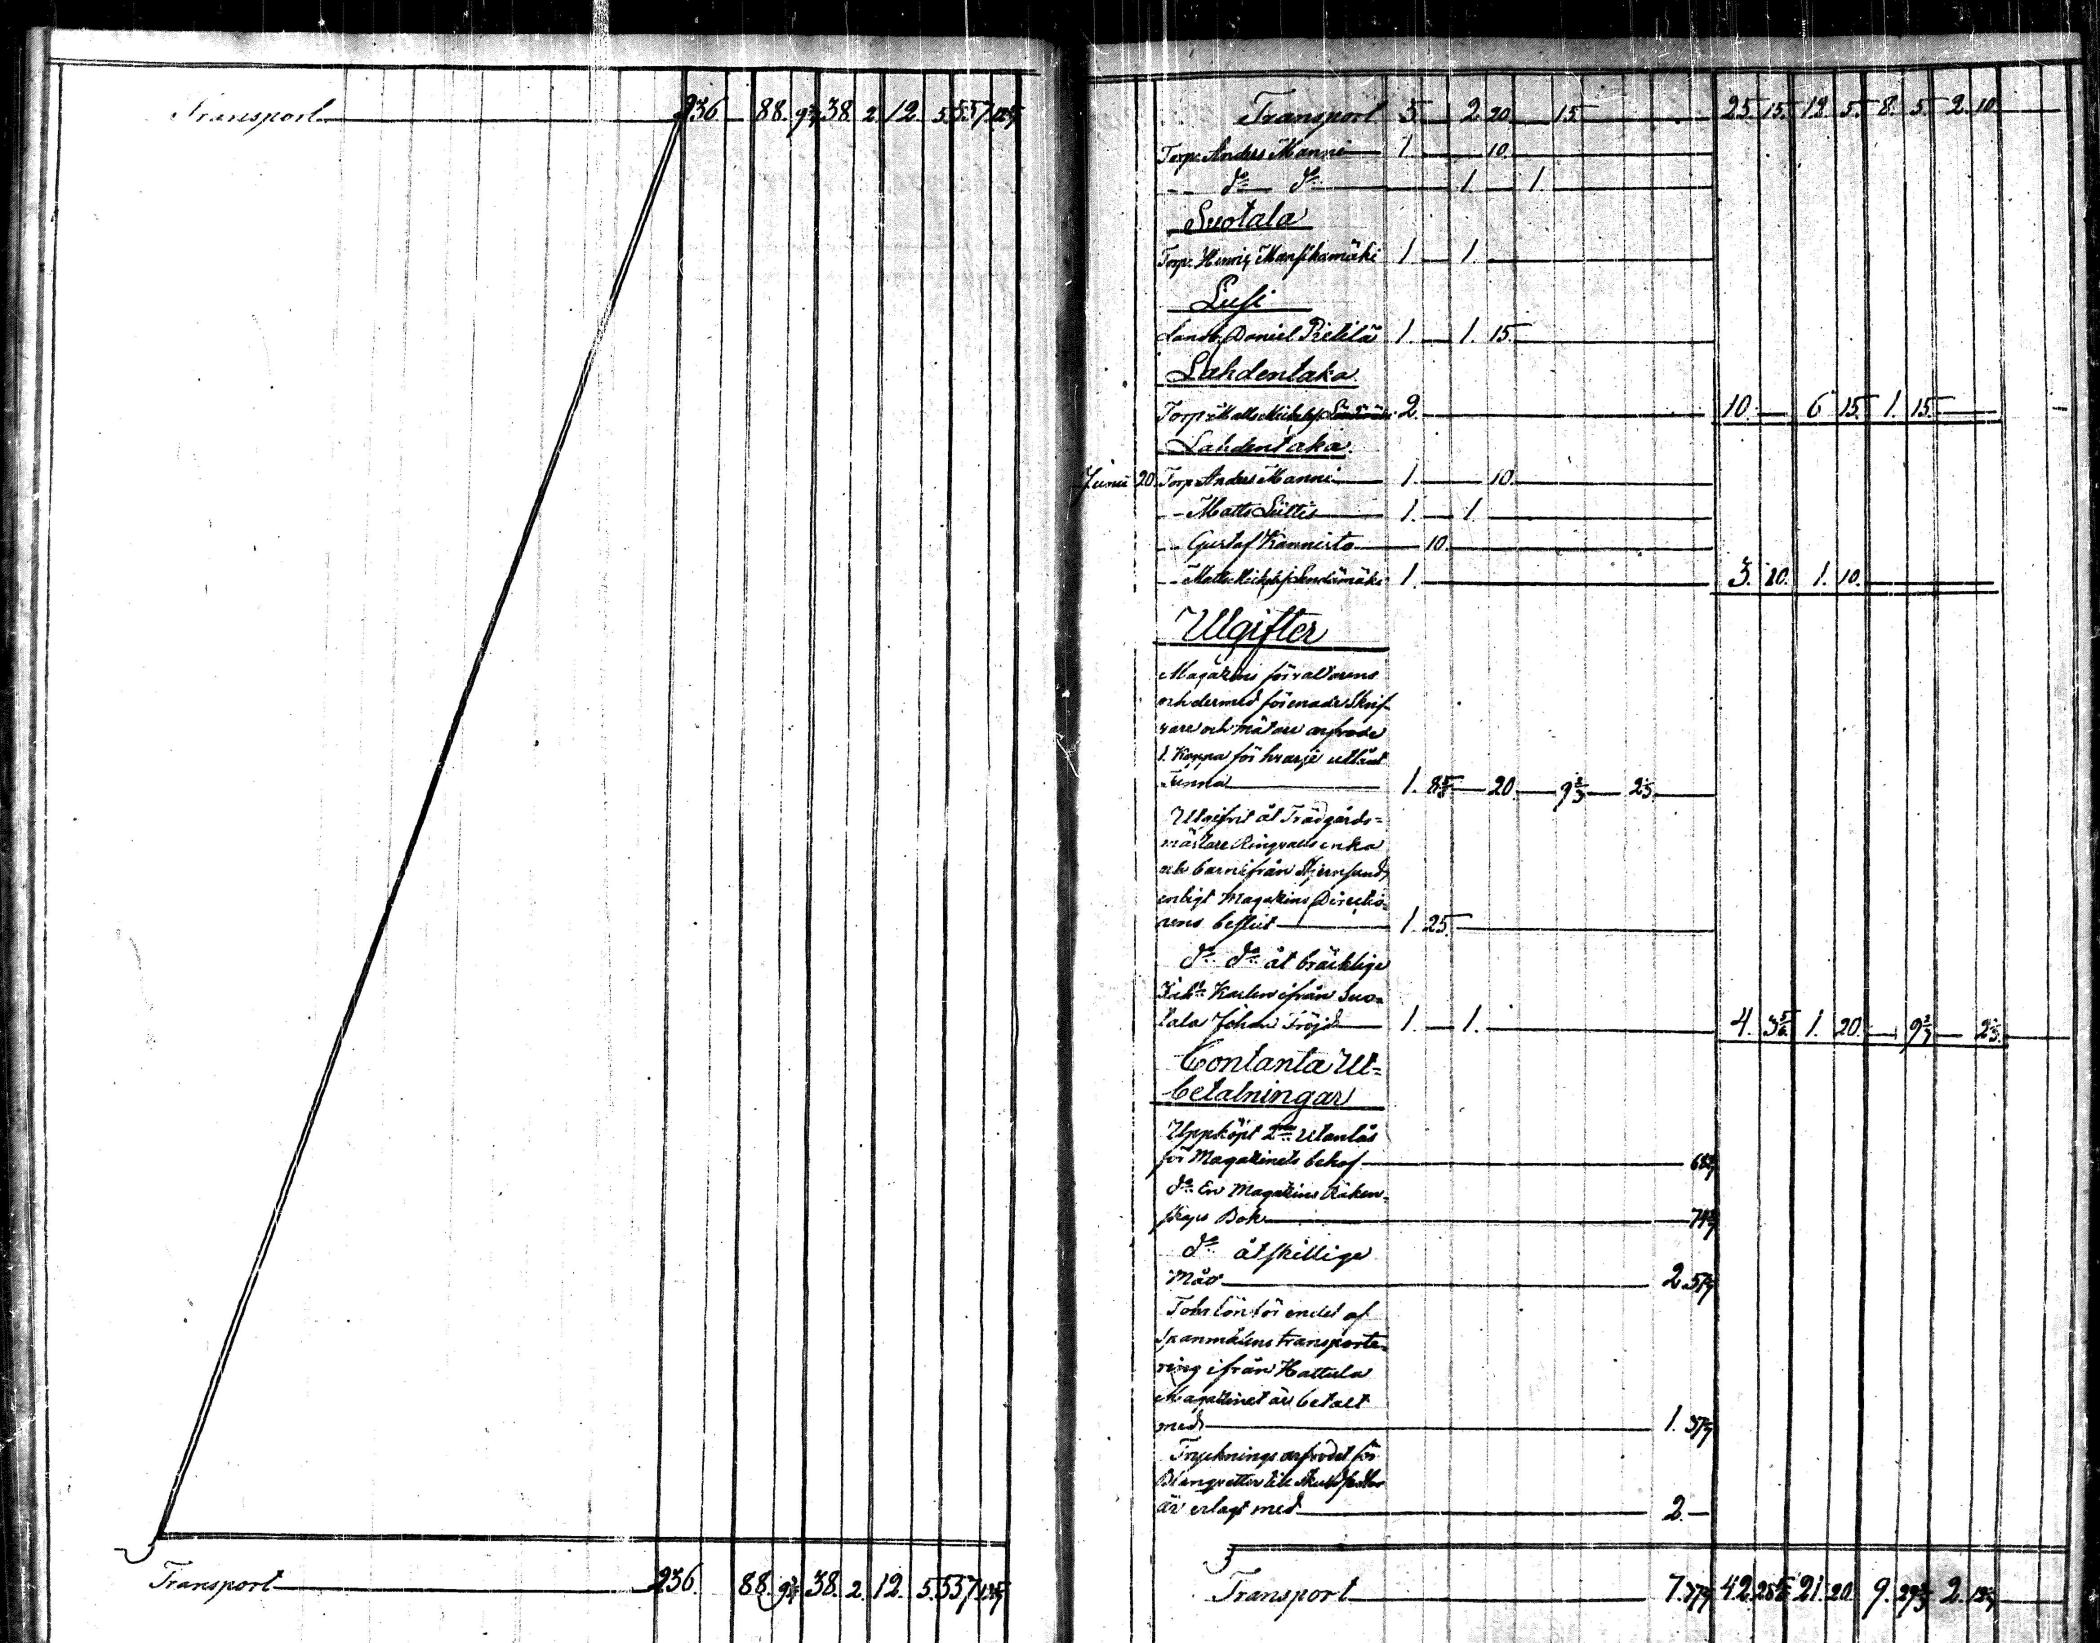 Transport 236 88. 38. 2. 12. 5. 557.
Transport 236. 88. 38. 2. 12. 5. 557.
Transport 5 2. 20. 15 25. 15. 12 5. 8. 5. 2. 10
Torp. Anders Manni 1. 10.
do do 1. 1.
Suotala
Torp. Henric Mansikamäki 1. 1.
Lusi
Landb. Daniel Pietilä 1. 1. 15.
Lahdentaka
Torp. Matts Michelss. 2. 10. 6 15. 1. 15.
Lahdentaka.
Junii 20. Torp. Anders Manni 1. 10.
Matts Lüttis 1. 1.
Gustaf Kannisto 10.
Matts Michelss. 1. 3. 20. 1. 10.
Utgifter
Magazins förvaltarens
och dermed förenade Skrif-
vare och mätare arfvode
1. Kappa för hvarje utlånt
Tunna 1. 20. 9 2/3
Utgifvit åt Trädgårds=
mästare Ringvalls enka
och barn ifrån
enligt Magazins Directio-
nens beslut 1. 25.
do do åt bräcklige
Karlen ifrån Suo=
tala Johan Fröjd 1. 1. 4. 1. 20.
Contanta Ut=
betalningar
Uppköpt 2ne Utanlås
för Magazinets behof
do En Magazins Räken-
skaps Bok
do åtskillige
Mått 2.
Forlön för endel af
Spanmålens transporte-
ring ifrån Hattula
Magazinet är betalt
med 1.
Trycknings arfvodet för
Blanquetter till
är erlagt med 2.
Transport 7. 42. 21. 20. 9. 2.